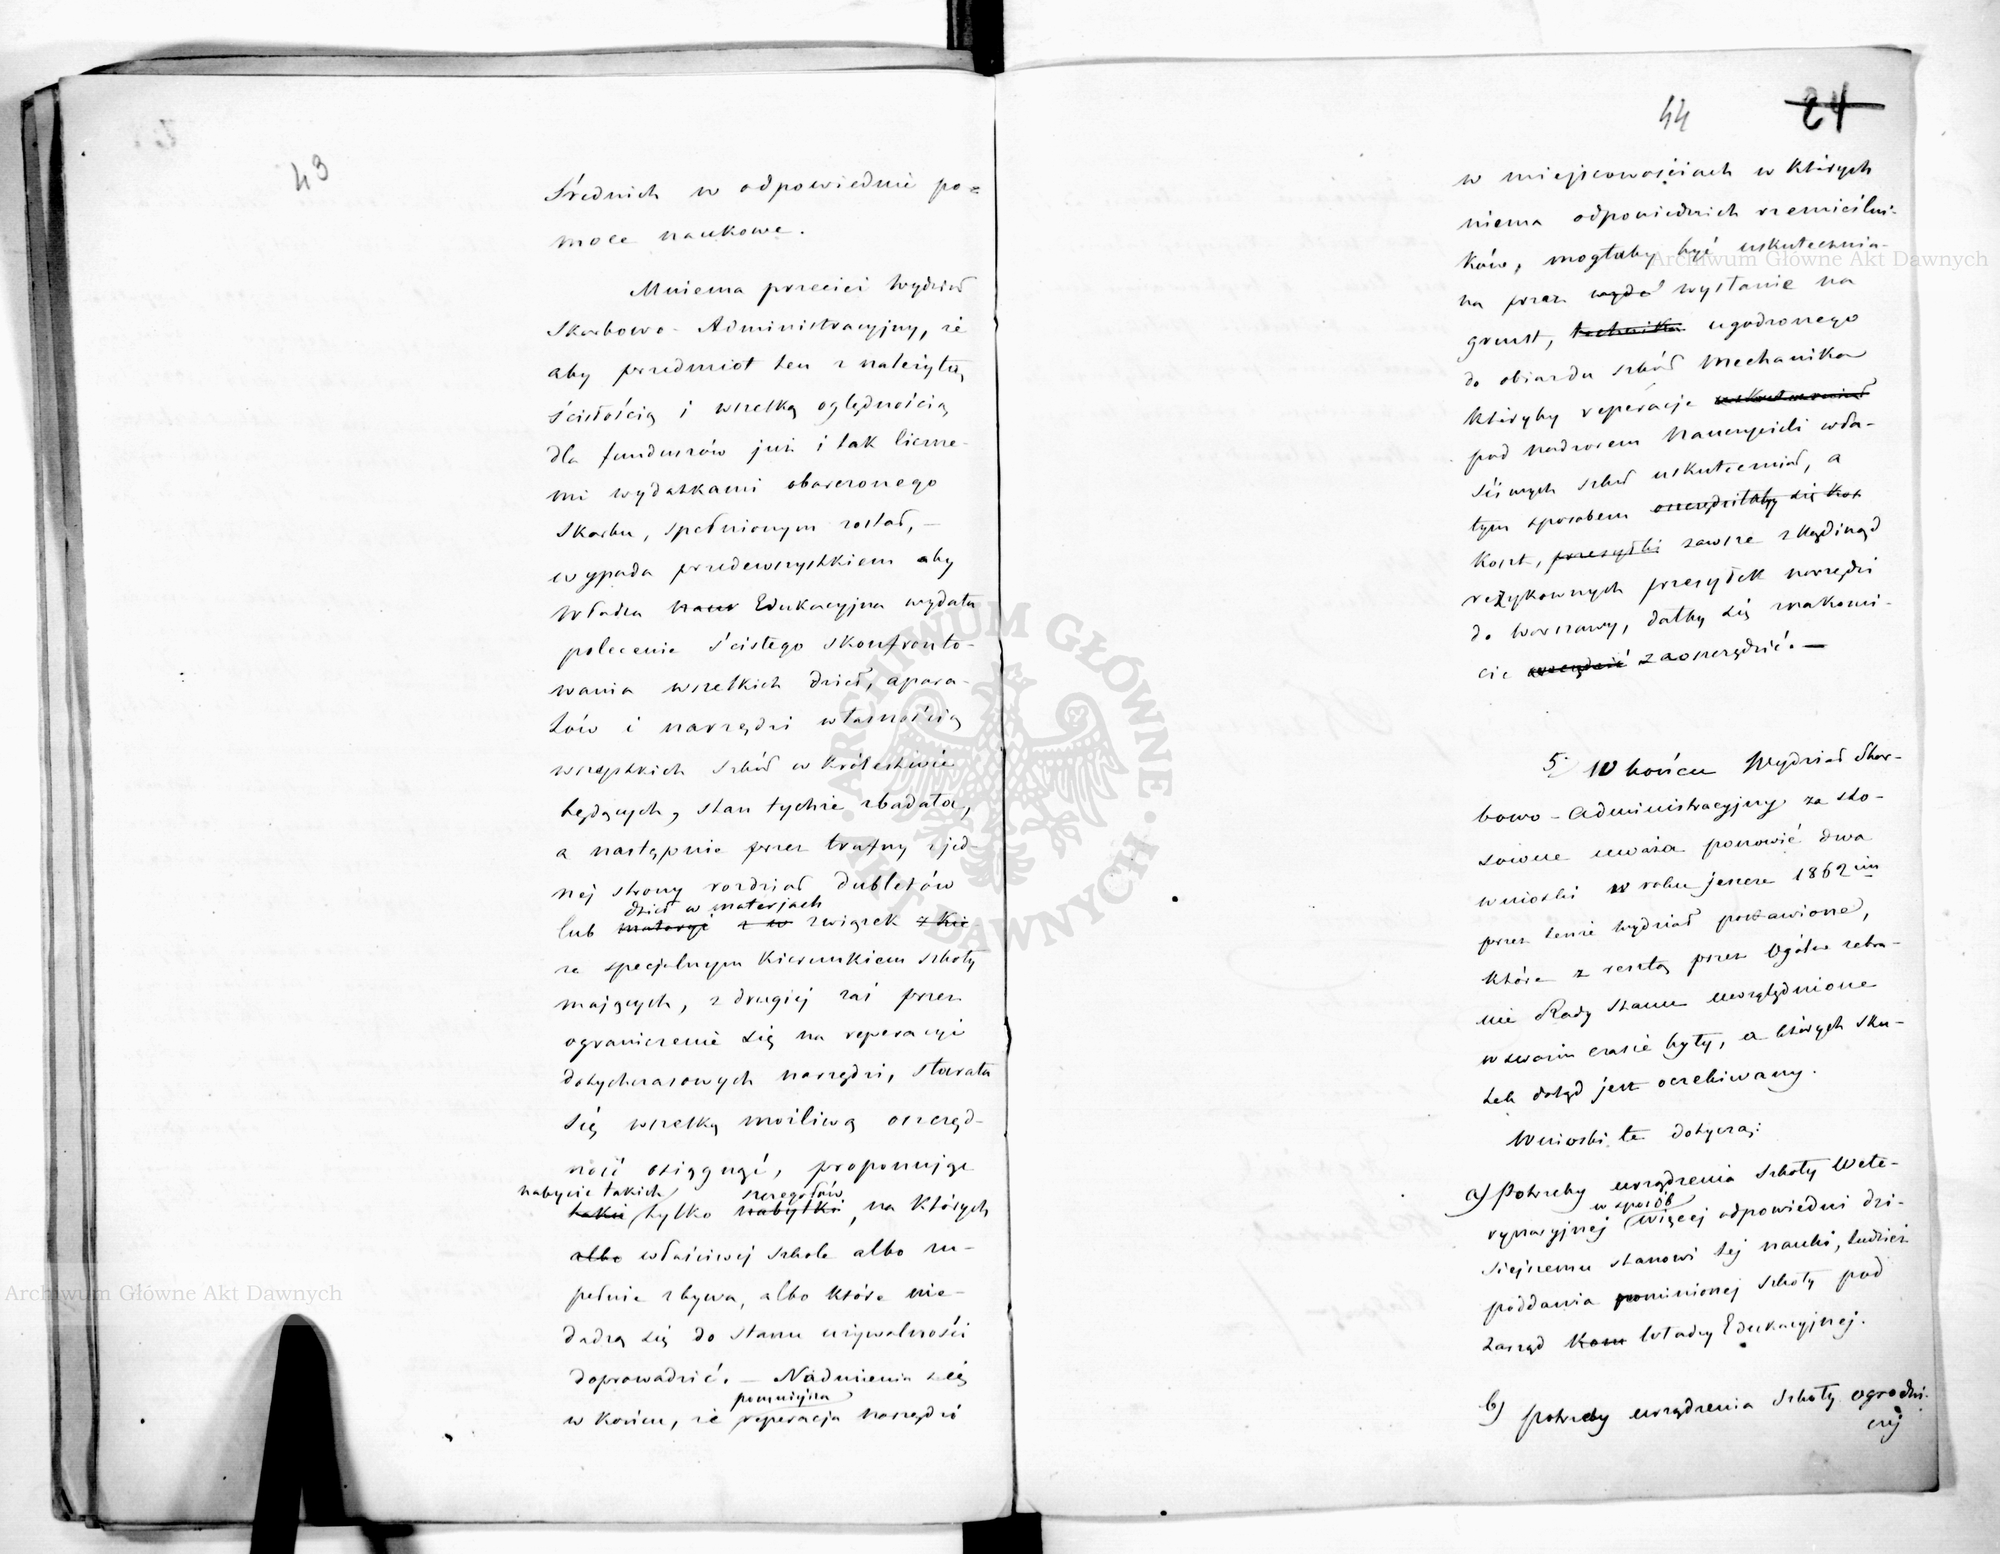 43
Średnich w odpowiednie po=
moce naukowe.
Mniema przecież Wydział
Skarbowo-Administracyjny, że
aby przedmiot ten z należytą
ścisłością i wszelką oględnością
dla funduszów już i tak liczne-
mi wydatkami obarczonego
Skarbu, spełnionym został, —
wypada przedewszystkiem aby
Władza Edukacyjna wydała
polecenie ścisłego skonfronto-
wania wszelkich dzieł, apara-
tów i narzędzi własnością
wszystkich szkół w Królestwie
będących, stan tychże zbadała,
a następnie przez trafny z jed-
nej strony rozdział dubletów
dzieł w materjach
lub z w związek z Kie
ze specjalnym Kierunkiem szkoły
mających, z drugiej zaś przez
ograniczenie się na reperacyi
dotychczasowych narzędzi, starała
się wszelką możliwą oszczęd-
ność osiągnąć, proponując
nabycie takich szczegółów
takie tylko nabytki, na których
albo właściwej szkole albo zu-
pełnie zbywa, albo które nie-
dadzą się do stanu używalności
doprowadzić. — Nadmienia się
pomniejsza
w końcu, że reperacja narzędzi
44 24
w miejscowościach w których
niema odpowiednich rzemieślni-
ków, mogłaby być uskutecznia-
na przez wysłanie na
grunt, technika ugodzonego
do objazdu szkół Mechanika
któryby reperacje uskuteczniał
pod nadzorem Nauczycieli wła-
ściwych szkół uskuteczniał, a
tym sposobem oszczędziłaby się kos
koszt, przesyłki zawsze zkądinąd
ryzykownych przesyłek narzędzi
do Warszawy, dałby się znakomi-
cie zaoszczędzić. —
5. W końcu Wydział Skar-
bowo-Administracyjny za sto-
sowne uważa ponowić dwa
wnioski w roku jeszcze 1862im
przez tenże Wydział postawione,
które z resztą przez Ogólne zebra-
nie Rady Stanu uwzględnione
w swoim czasie były, a których sku-
tek dotąd jest oczekiwany.
Wnioski te dotyczą:
a) Potrzeby urządzenia Szkoły Wete-
w sposób
rynaryjnej więcej odpowiedni dzi-
siejszemu stanowi tej nauki, tudzież
poddania pominionej Szkoły pod
zarząd Kom Władzy Edukacyjnej.
b) Potrzeby urządzenia Szkoły ogrodni-
czej
Archiwum Główne Akt Dawnych
Archiwum Główne Akt Dawnych
ARCHIWUM GŁÓWNE AKT DAWNYCH